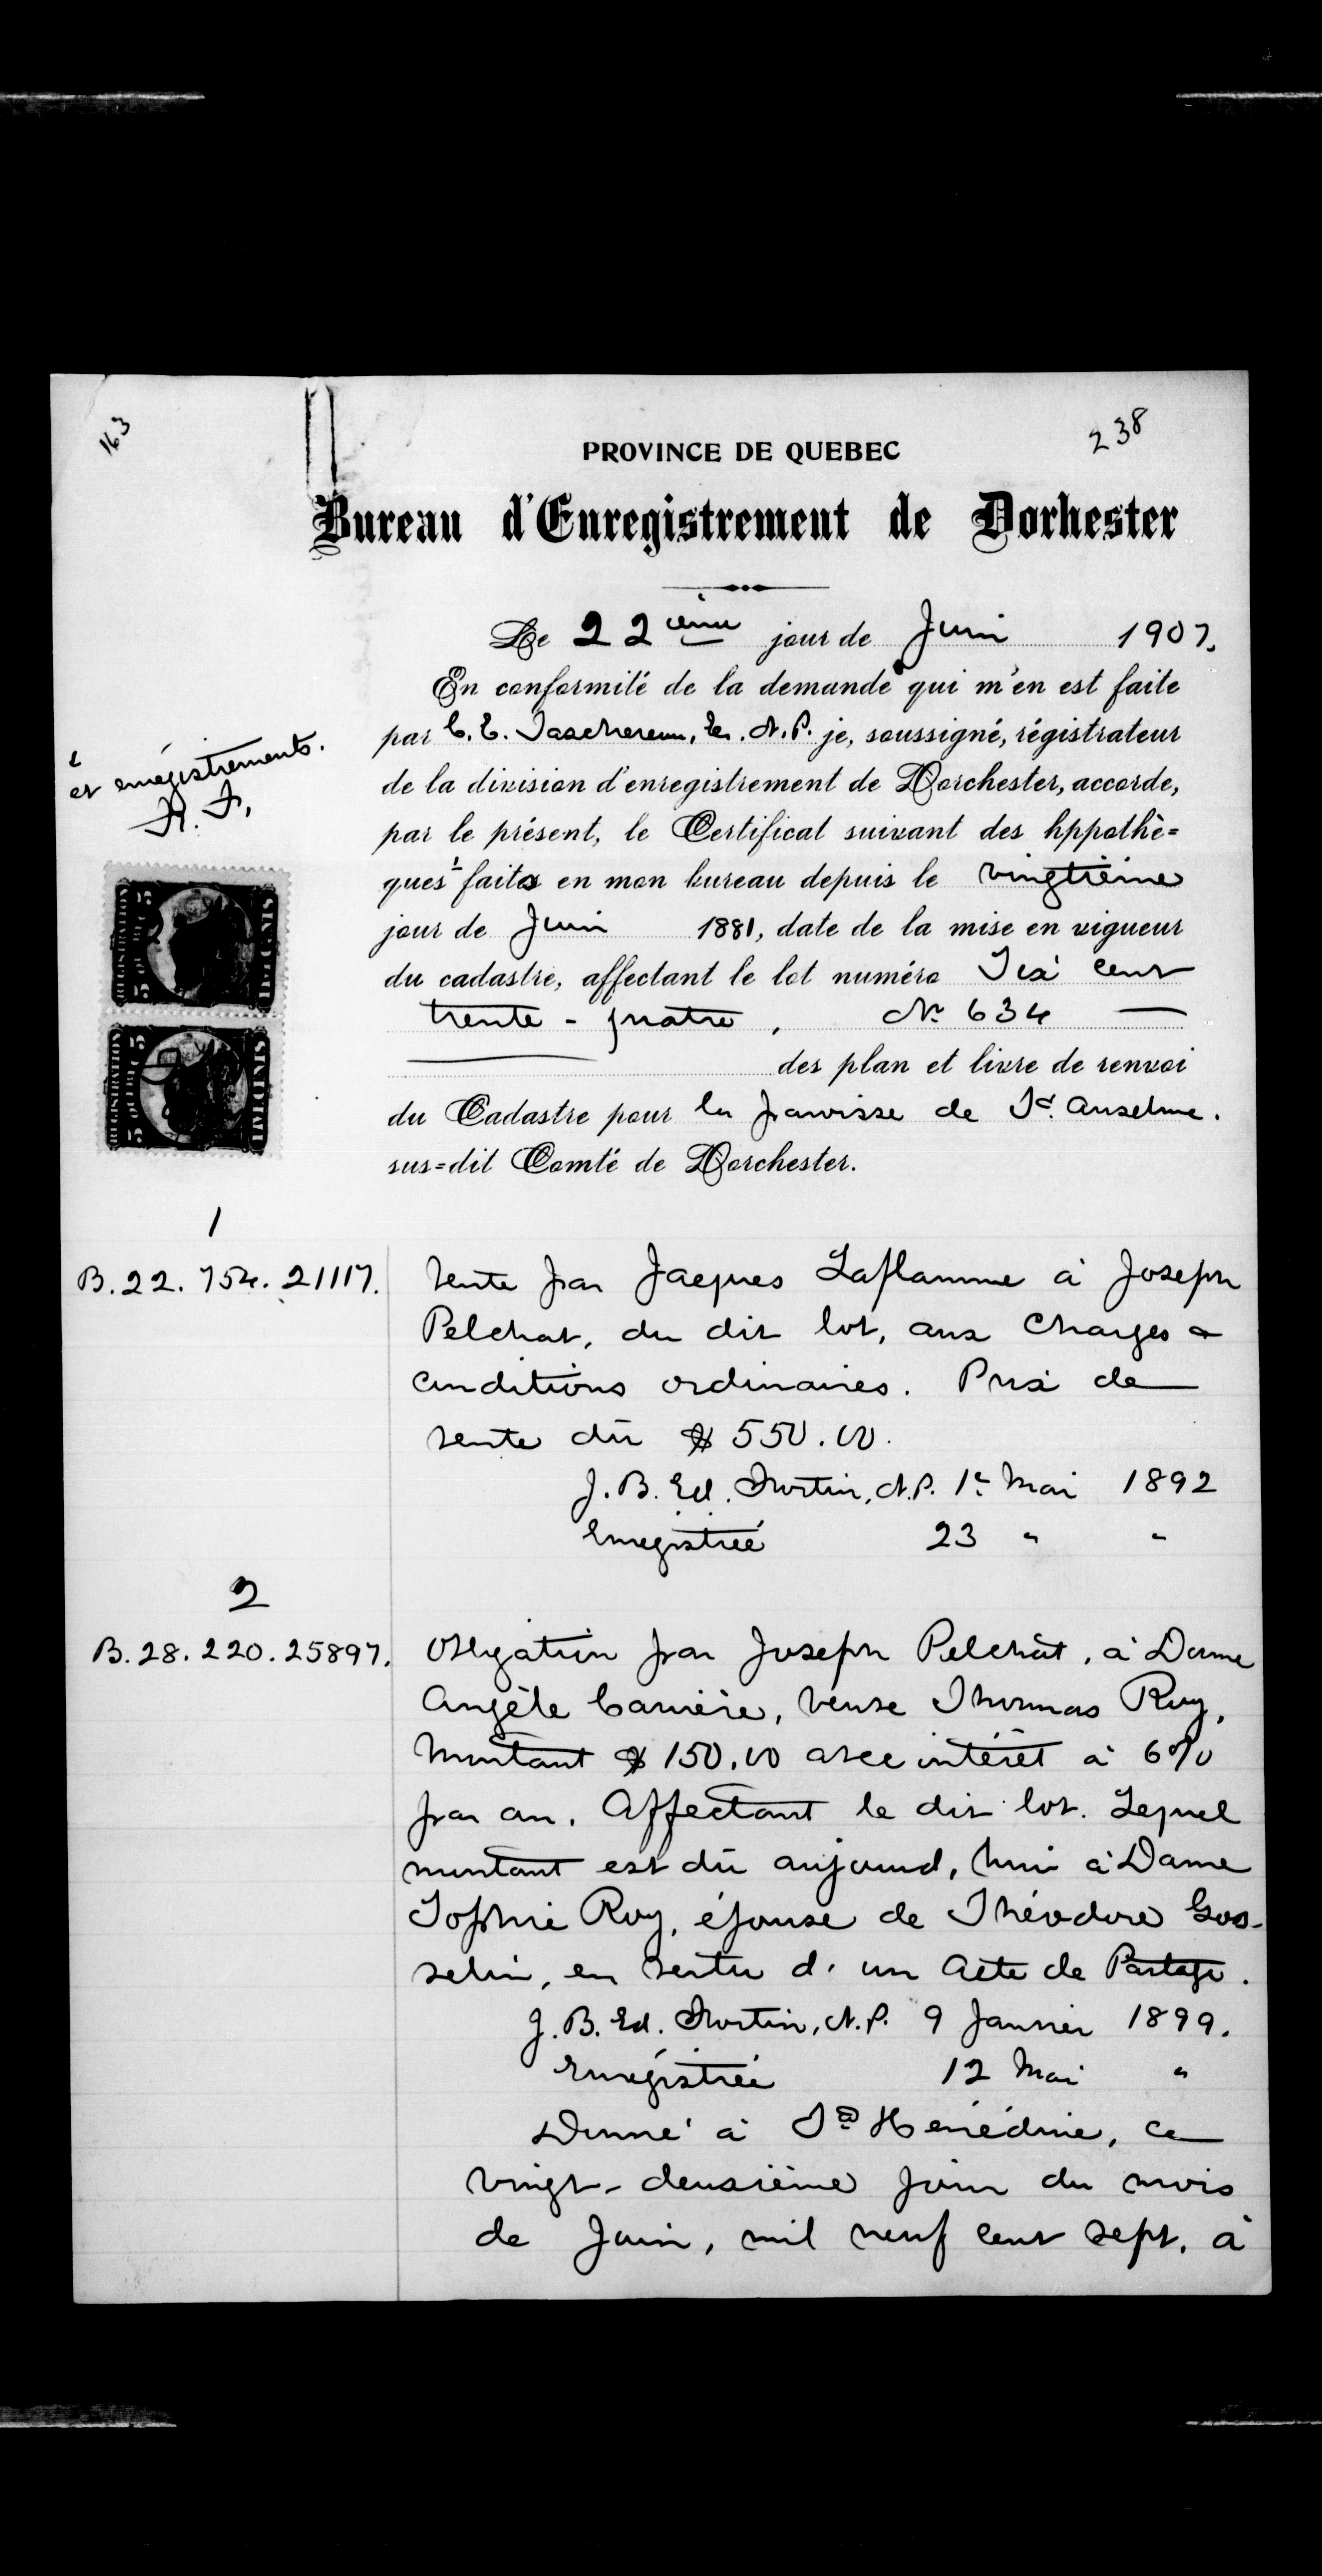 163
238
PROVINCE DE QUEBEC
Bureau d'Enregistrement de Dorhester
Le 22ième jour de Juin 1907.
En conformité de la demande qui m'en est faite
par C. E. Taschereau, Er. N.P. je, soussigné, régistrateur
de la division d'enregistrement de Dorchester, accorde,
par le présent, le Certificat suivant des hppothè=
ques faits en mon bureau depuis le vingtième
jour de Juin 1881, date de la mise en vigueur
du cadastre, affectant le lot numéro Six cent
trente-quatre, No 634
des plan et livre de renvoi
du Cadastre pour la paroisse de St. Anselme.
sus=dit Comté de Dorchester.
et enrégistrements.
REGISTRATION
5 QUEBEC 5
REGISTRATION
5 QUEBEC 5
1
B. 22. 754. 21117.
Vente par Jacques Laflamme à Joseph
Pelchat, du dit lot, aux Charges &
conditions ordinaires. Prix de
vente dû $550.00.
J. B. Ed. Fortin, N.P. 1er Mai 1892
Enregistrée 23 " "
2
B. 28. 220. 25897.
Obligation par Joseph Pelchat, à Dame
Angèle Carrière, veuve Thomas Roy,
Montant $150.00 avec intérêt à 6%
par an. Affectant le dit lot. Lequel
montant est dû aujourd, hui à Dame
Sophie Roy, épouse de Théodore Gos-
selin, en vertu d'un Acte de Partage.
J. B. Ed. Fortin, N.P. 9 Janvier 1899.
Enrégistrée 12 Mai "
Donné à Ste Hénédine, ce
vingt-deuxième jour du mois
de Juin, mil neuf cent sept, à